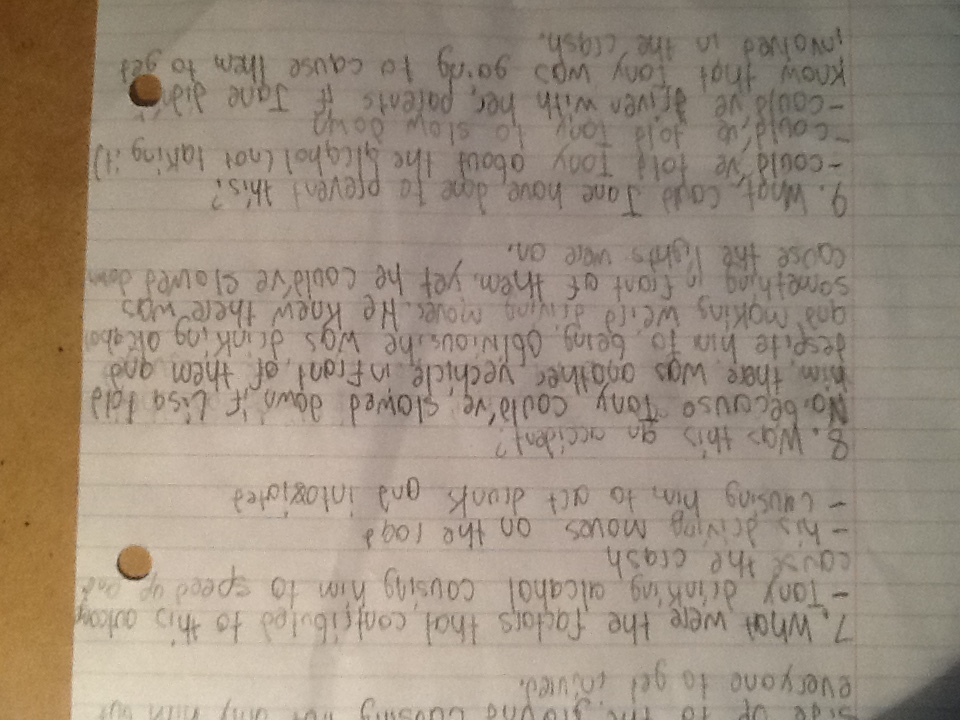 side up to the ground causing not only him but
everyone to get injured.
7. What were the factors that contributed to this outcome
- Tony drinking alcahol causing him to speed up and
cause the crash
- his driving moves on the road
- causing him to act drunk and intoxiated
8. Was this an accident?
No because Tony could've slowed down if Lisa told
him there was another vechicle infront of them and
despite him to being oblivious, he was drinking alcahol
and making weird driving moves. He knew there was
something in front of them, yet he could've slowed down
cause the lights were on.
9. What could Jane have done to prevent this?
- could've told Tony about the alcahol (not taking it)
- could've told Tony to slow down
- could've driven with her parents if Jane didn't
know that Tony was going to cause them to get
involved in the crash.